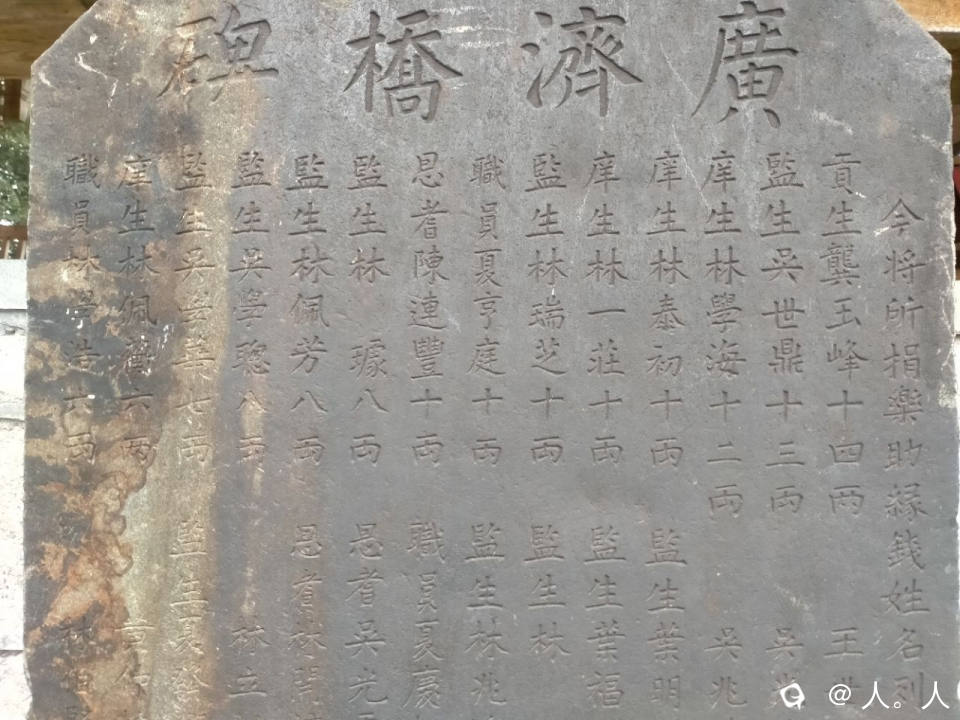 廣濟橋碑
今将所捐樂助緣錢姓名列
貢生龔玉峰十四兩 王世
監生吳世鼎十三兩 吳兆
庠生林學海十二兩 吳兆
庠生林泰初十兩 監生葉明
庠生林一莊十兩 監生葉福
監生林瑞芝十兩 監生林
職員夏亨庭十兩 監生林兆
恩耆陳連豐十兩 職員夏慶
監生林璩八兩 恩耆吳光
監生林佩芳八兩 恩耆林開
監生吳學聰八兩 林立
監生吳學華七兩 監生夏發
庠生林佩蘅六兩
職員林學浩六兩 林
@人。人